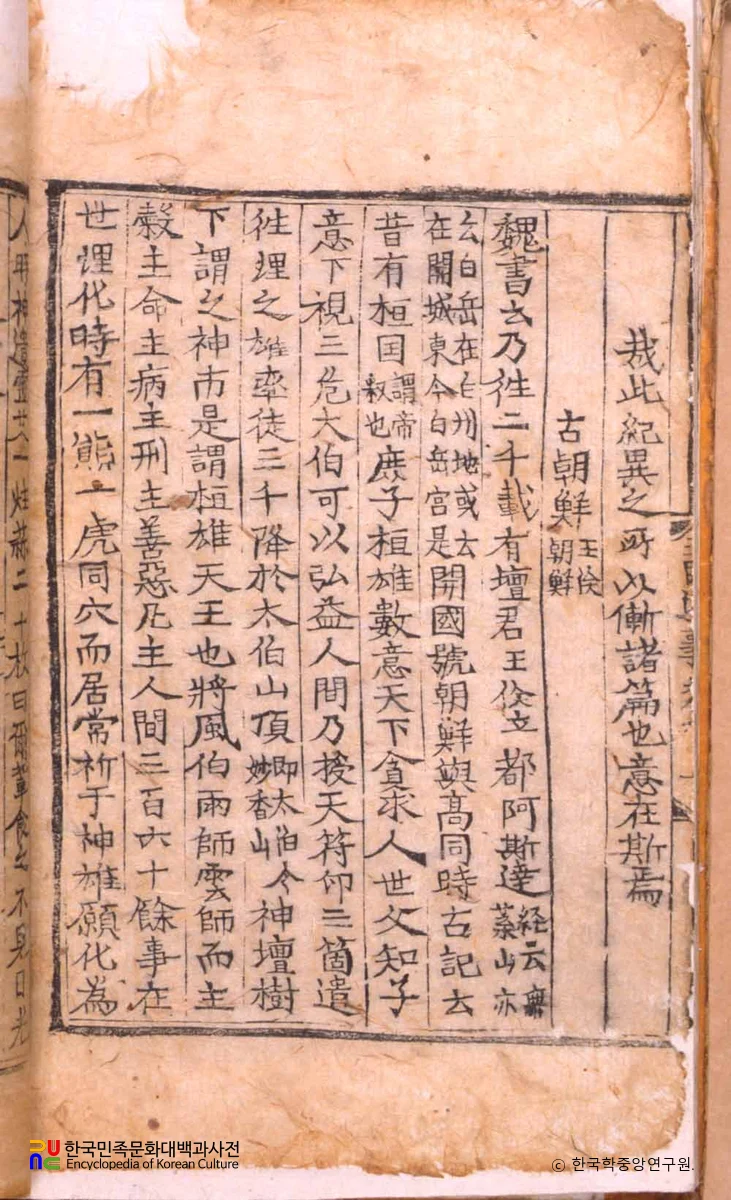 哉此紀異之所以慚諸篇也意在斯焉
古朝鮮王倹朝鮮
魏書云乃徃二千載有壇君王倹立都阿斯達経云無葉山亦
云白岳在白州地或云在開城東今白岳宮是開國號朝鮮與高同時古記云
昔有桓囯謂帝釈也庶子桓雄數意天下貪求人世父知子
意下視三危太伯可以弘益人間乃授天符印三箇遣
徃理之雄率徒三千降於太伯山頂即太伯今妙香山神壇樹
下謂之神市是謂桓雄天王也將風伯雨師雲師而主
糓主命主病主刑主善惡凢主人間三百六十餘事在
世理化時有一熊一虎同穴而居常祈于神雄願化為
人時神遺靈艾一炷蒜二十枚曰爾輩食之不見日光
한국민족문화대백과사전
Encyclopedia of Korean Culture
© 한국학중앙연구원